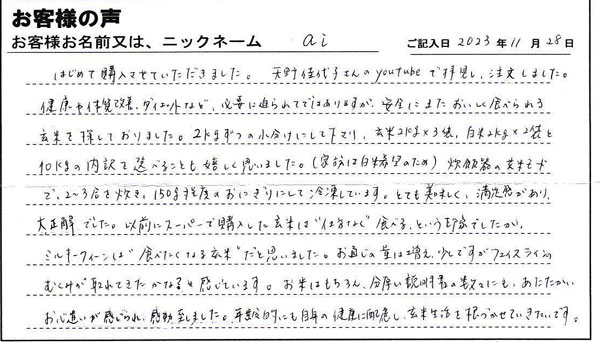 お客様の声
お客様お名前又は、ニックネーム ai ご記入日 2023年 11月 28日
はじめて購入させていただきました。天野佳代子さんのyoutubeで拝見し、注文しました。
健康や体質改善、ダイエットなど、必要に迫られてではありますが、安全にまたおいしく食べられる
玄米を探しておりました。2kgずつの小分けにして下さり、玄米2kg×3袋、白米2kg×2袋と
10kgの内訳で選べることも嬉しく思いました。(家族は白米希望のため) 炊飯器の玄米モード
で、2〜3合を炊き、150g程度のおにぎりにして冷凍しています。とても美味しく、満足感があり、
大正解でした。以前にスーパーで購入した玄米は"仕方なく"食べる、という印象でしたが、
ミルキークイーンは"食べたくなる玄米"だと思いました。お通じの量は増え、少しですがフェイスラインの
むくみが取れてきたかなぁと感じています。お米はもちろん、分厚い説明書の数々にも、あたたかい
お心遣いが感じられ、感動至しました。年齢的にも自身の健康に配慮し、玄米生活を根づかせていきたいです。